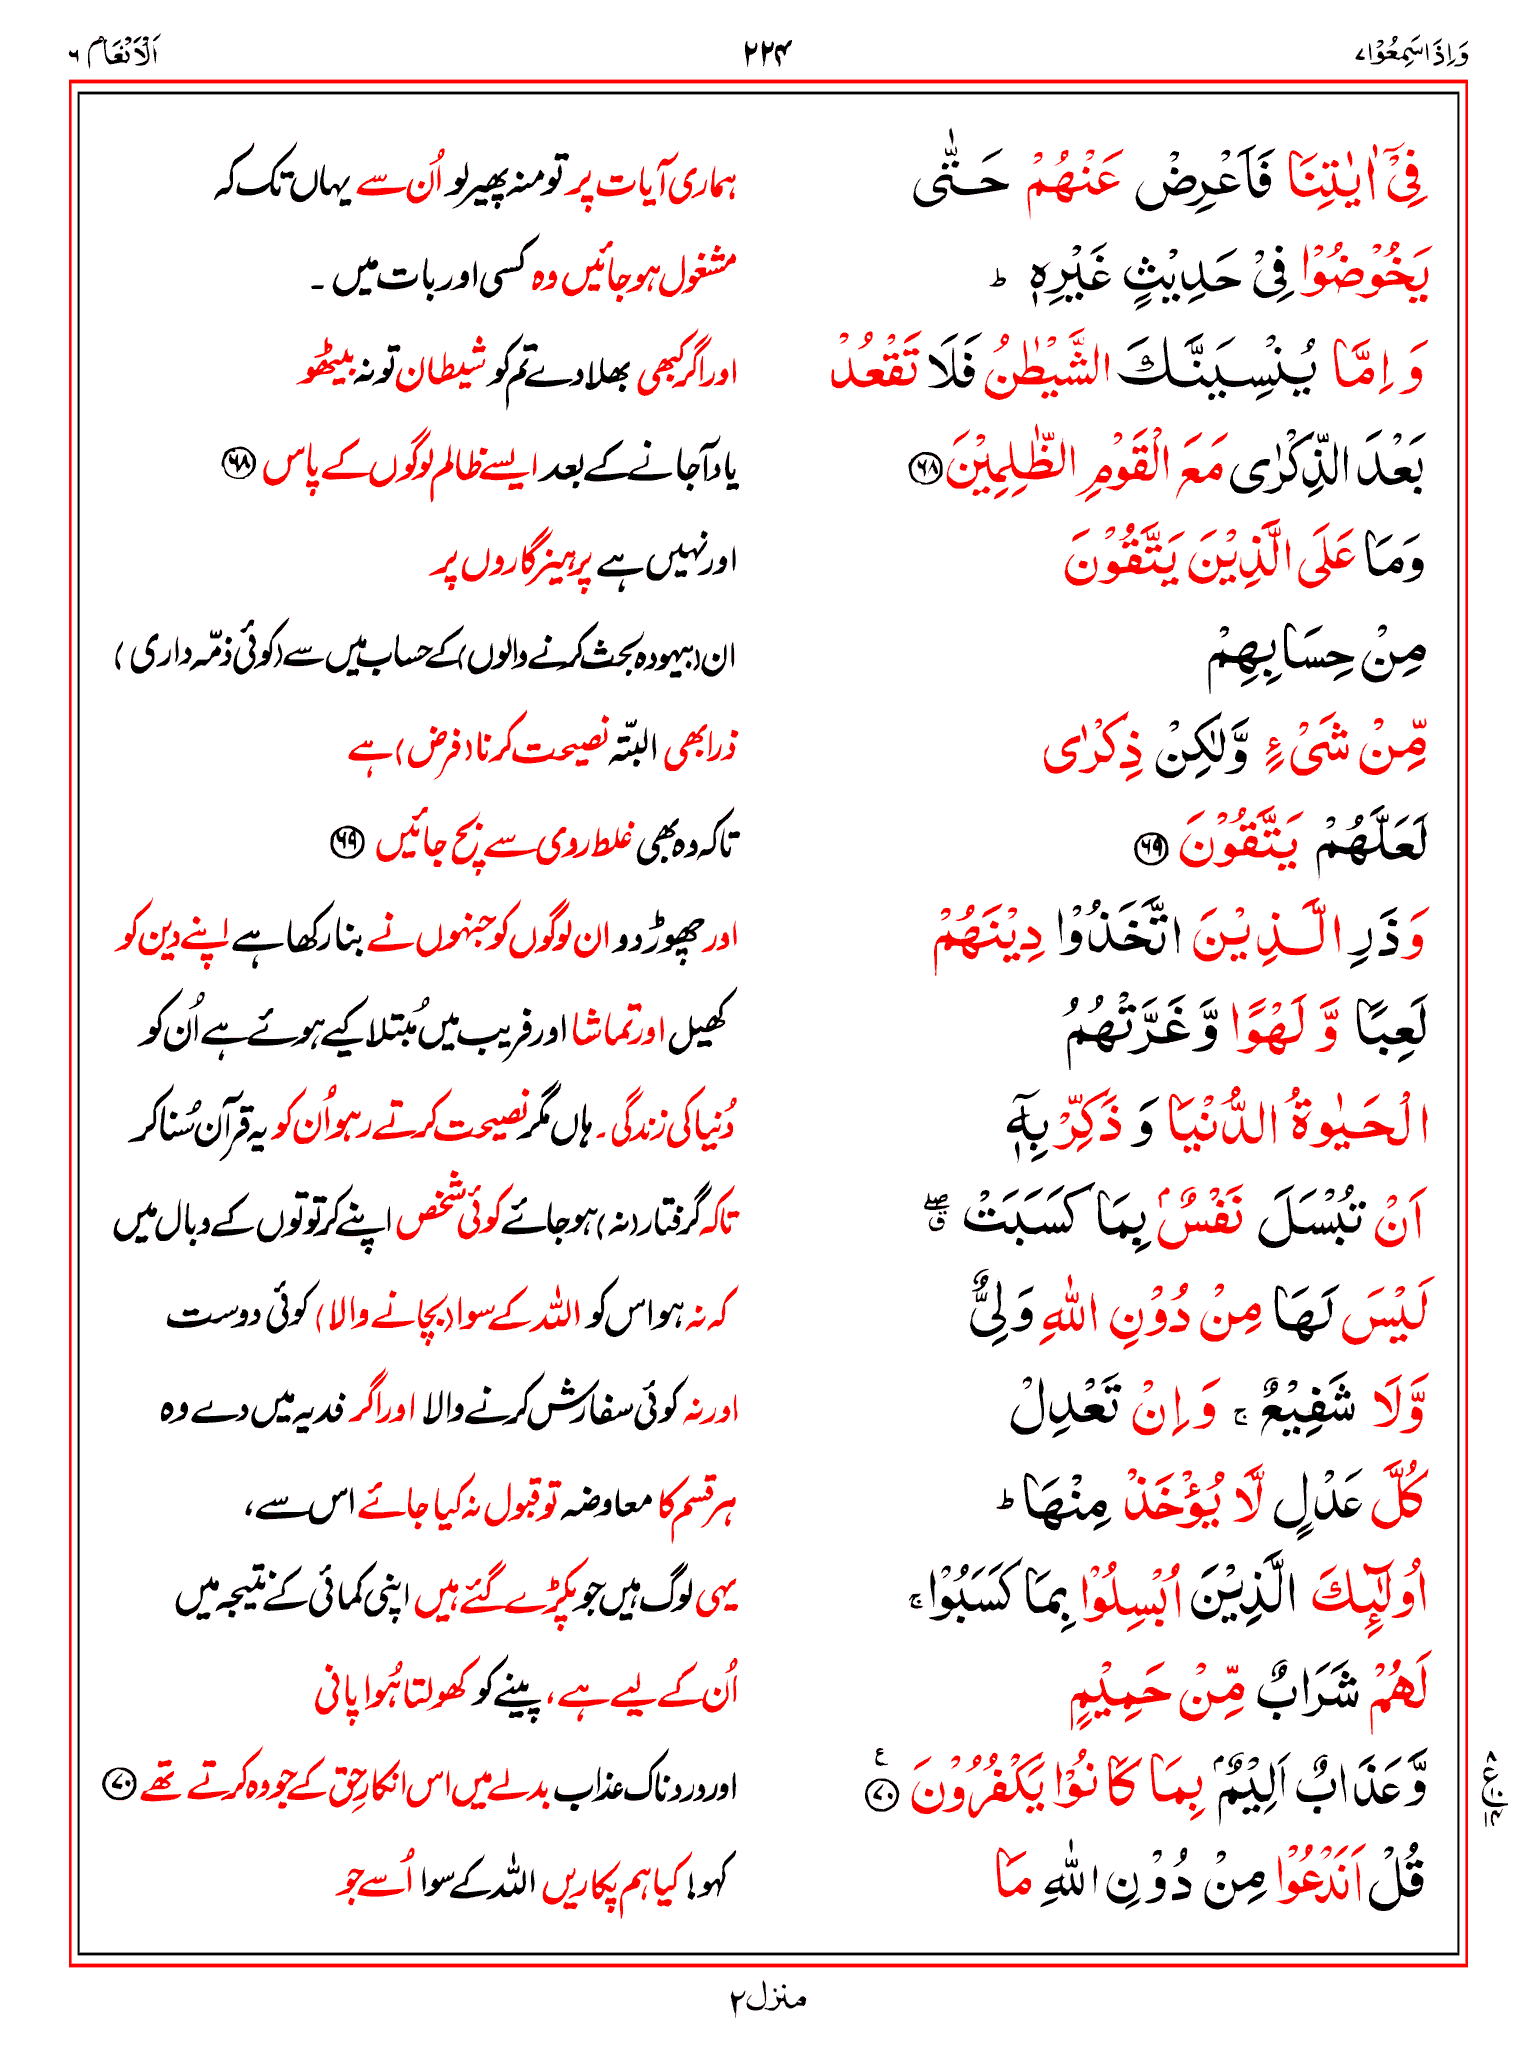 وَاِذَا سَمِعُوْا ۷ ۲۲۴ اَلْاَنْعَام ۶
فِیْۤ اٰیٰتِنَا فَاَعْرِضْ عَنْهُمْ حَتّٰی ہماری آیات پر تو منہ پھیر لو اُن سے یہاں تک کہ
یَخُوْضُوْا فِیْ حَدِیْثٍ غَیْرِهٖ ؕ مشغول ہو جائیں وہ کسی اور بات میں ۔
وَ اِمَّا یُنْسِیَنَّكَ الشَّیْطٰنُ فَلَا تَقْعُدْ اور اگر کبھی بھلا دے تم کو شیطان تو نہ بیٹھو
بَعْدَ الذِّكْرٰی مَعَ الْقَوْمِ الظّٰلِمِیْنَ ۶۸ یاد آجانے کے بعد ایسے ظالم لوگوں کے پاس ۶۸
وَمَا عَلَی الَّذِیْنَ یَتَّقُوْنَ اور نہیں ہے پرہیزگاروں پر
مِنْ حِسَابِهِمْ ان (بیہودہ بحث کرنے والوں) کے حساب میں سے (کوئی ذمّہ داری)
مِّنْ شَیْءٍ وَّلٰكِنْ ذِكْرٰی ذرا بھی البتّہ نصیحت کرنا (فرض) ہے
لَعَلَّهُمْ یَتَّقُوْنَ ۶۹ تاکہ وہ بھی غلط روی سے بچ جائیں ۶۹
وَذَرِ الَّذِیْنَ اتَّخَذُوْا دِیْنَهُمْ اور چھوڑ دو ان لوگوں کو جنہوں نے بنا رکھا ہے اپنے دین کو
لَعِبًا وَّ لَهْوًا وَّ غَرَّتْهُمُ کھیل اور تماشا اور فریب میں مُبتلا کیے ہوئے ہے اُن کو
الْحَیٰوةُ الدُّنْیَا وَ ذَكِّرْ بِهٖۤ دُنیا کی زندگی ۔ ہاں مگر نصیحت کرتے رہو اُن کو یہ قرآن سُنا کر
اَنْ تُبْسَلَ نَفْسٌۢ بِمَا كَسَبَتْ ۖۗ تاکہ گرفتار (نہ) ہو جائے کوئی شخص اپنے کرتوتوں کے وبال میں
لَیْسَ لَهَا مِنْ دُوْنِ اللّٰهِ وَلِیٌّ کہ نہ ہو اس کو اللہ کے سوا (بچانے والا) کوئی دوست
وَّلَا شَفِیْعٌ ۚ وَ اِنْ تَعْدِلْ اور نہ کوئی سفارش کرنے والا اور اگر فدیہ میں دے وہ
كُلَّ عَدْلٍ لَّا یُؤْخَذْ مِنْهَا ؕ ہر قسم کا معاوضہ تو قبول نہ کیا جائے اس سے،
اُولٰٓئِكَ الَّذِیْنَ اُبْسِلُوْا بِمَا كَسَبُوْا ۚ یہی لوگ ہیں جو پکڑے گئے ہیں اپنی کمائی کے نتیجہ میں
لَهُمْ شَرَابٌ مِّنْ حَمِیْمٍ اُن کے لیے ہے، پینے کو کھولتا ہُوا پانی
وَّعَذَابٌ اَلِیْمٌۢ بِمَا كَانُوْا یَكْفُرُوْنَ ۷۰ ع اور دردناک عذاب بدلے میں اس انکارِ حق کے جو وہ کرتے تھے ۷۰
قُلْ اَنَدْعُوْا مِنْ دُوْنِ اللّٰهِ مَا کہو! کیا ہم پکاریں اللہ کے سوا اُسے جو
منزل ۲